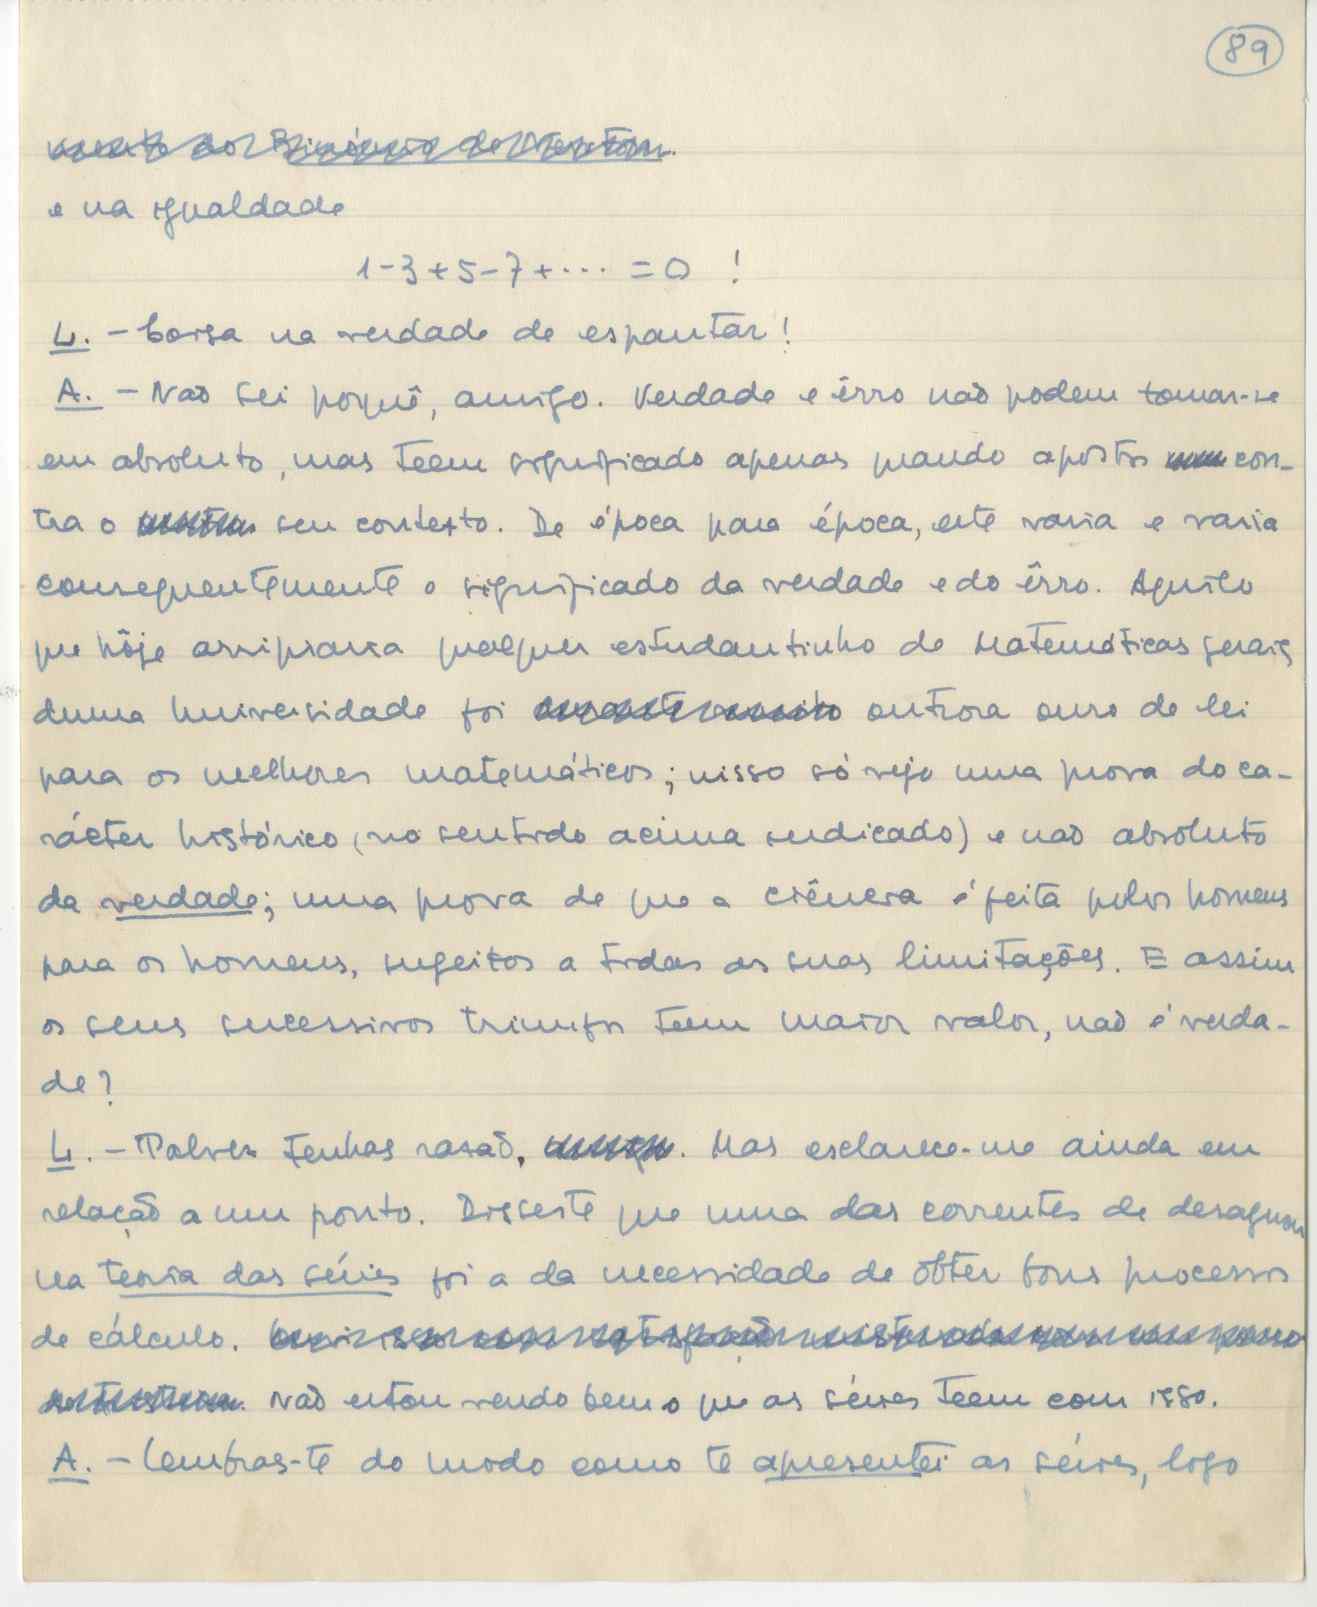 89
Binómio de Newton.
e na igualdade
1-3+5-7+... = 0 !
L. - Coisa na verdade de espantar!
A. - Não sei porquê, amigo. Verdade e êrro não podem tomar-se
em absoluto, mas teem significado apenas quando apostos con-
tra o seu contexto. De época para época, este varia e varia
consequentemente o significado da verdade e do êrro. Aquilo
que hôje arripiaria qualquer estudantinho de Matemáticas gerais
duma Universidade foi outrora ouro de lei
para os melhores matemáticos; nisso só vejo uma prova do ca-
rácter histórico (no sentido acima indicado) e não absoluto
da verdade; uma prova de que a ciência é feita pelos homens
para os homens, sugeitos a todas as suas limitações. E assim
os seus sucessivos triunfos teem maior valor, não é verda-
de?
L. - Talvez tenhas rasão. Mas esclarece-me ainda em
relação a um ponto. Disseste que uma das correntes de desaguou
na teoria das séries foi a da necessidade de obter bons processos
de cálculo.
Não estou vendo bem o que as séries teem com isso.
A. - Lembras-te do modo como te apresentei as séries, logo